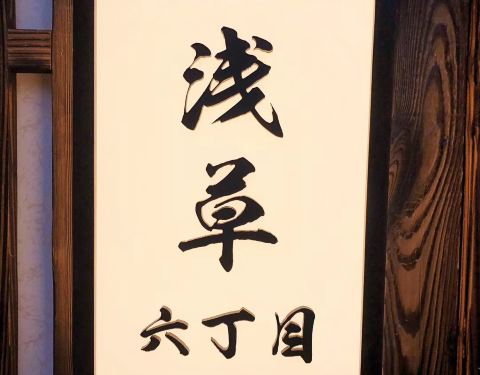 浅草
六丁目